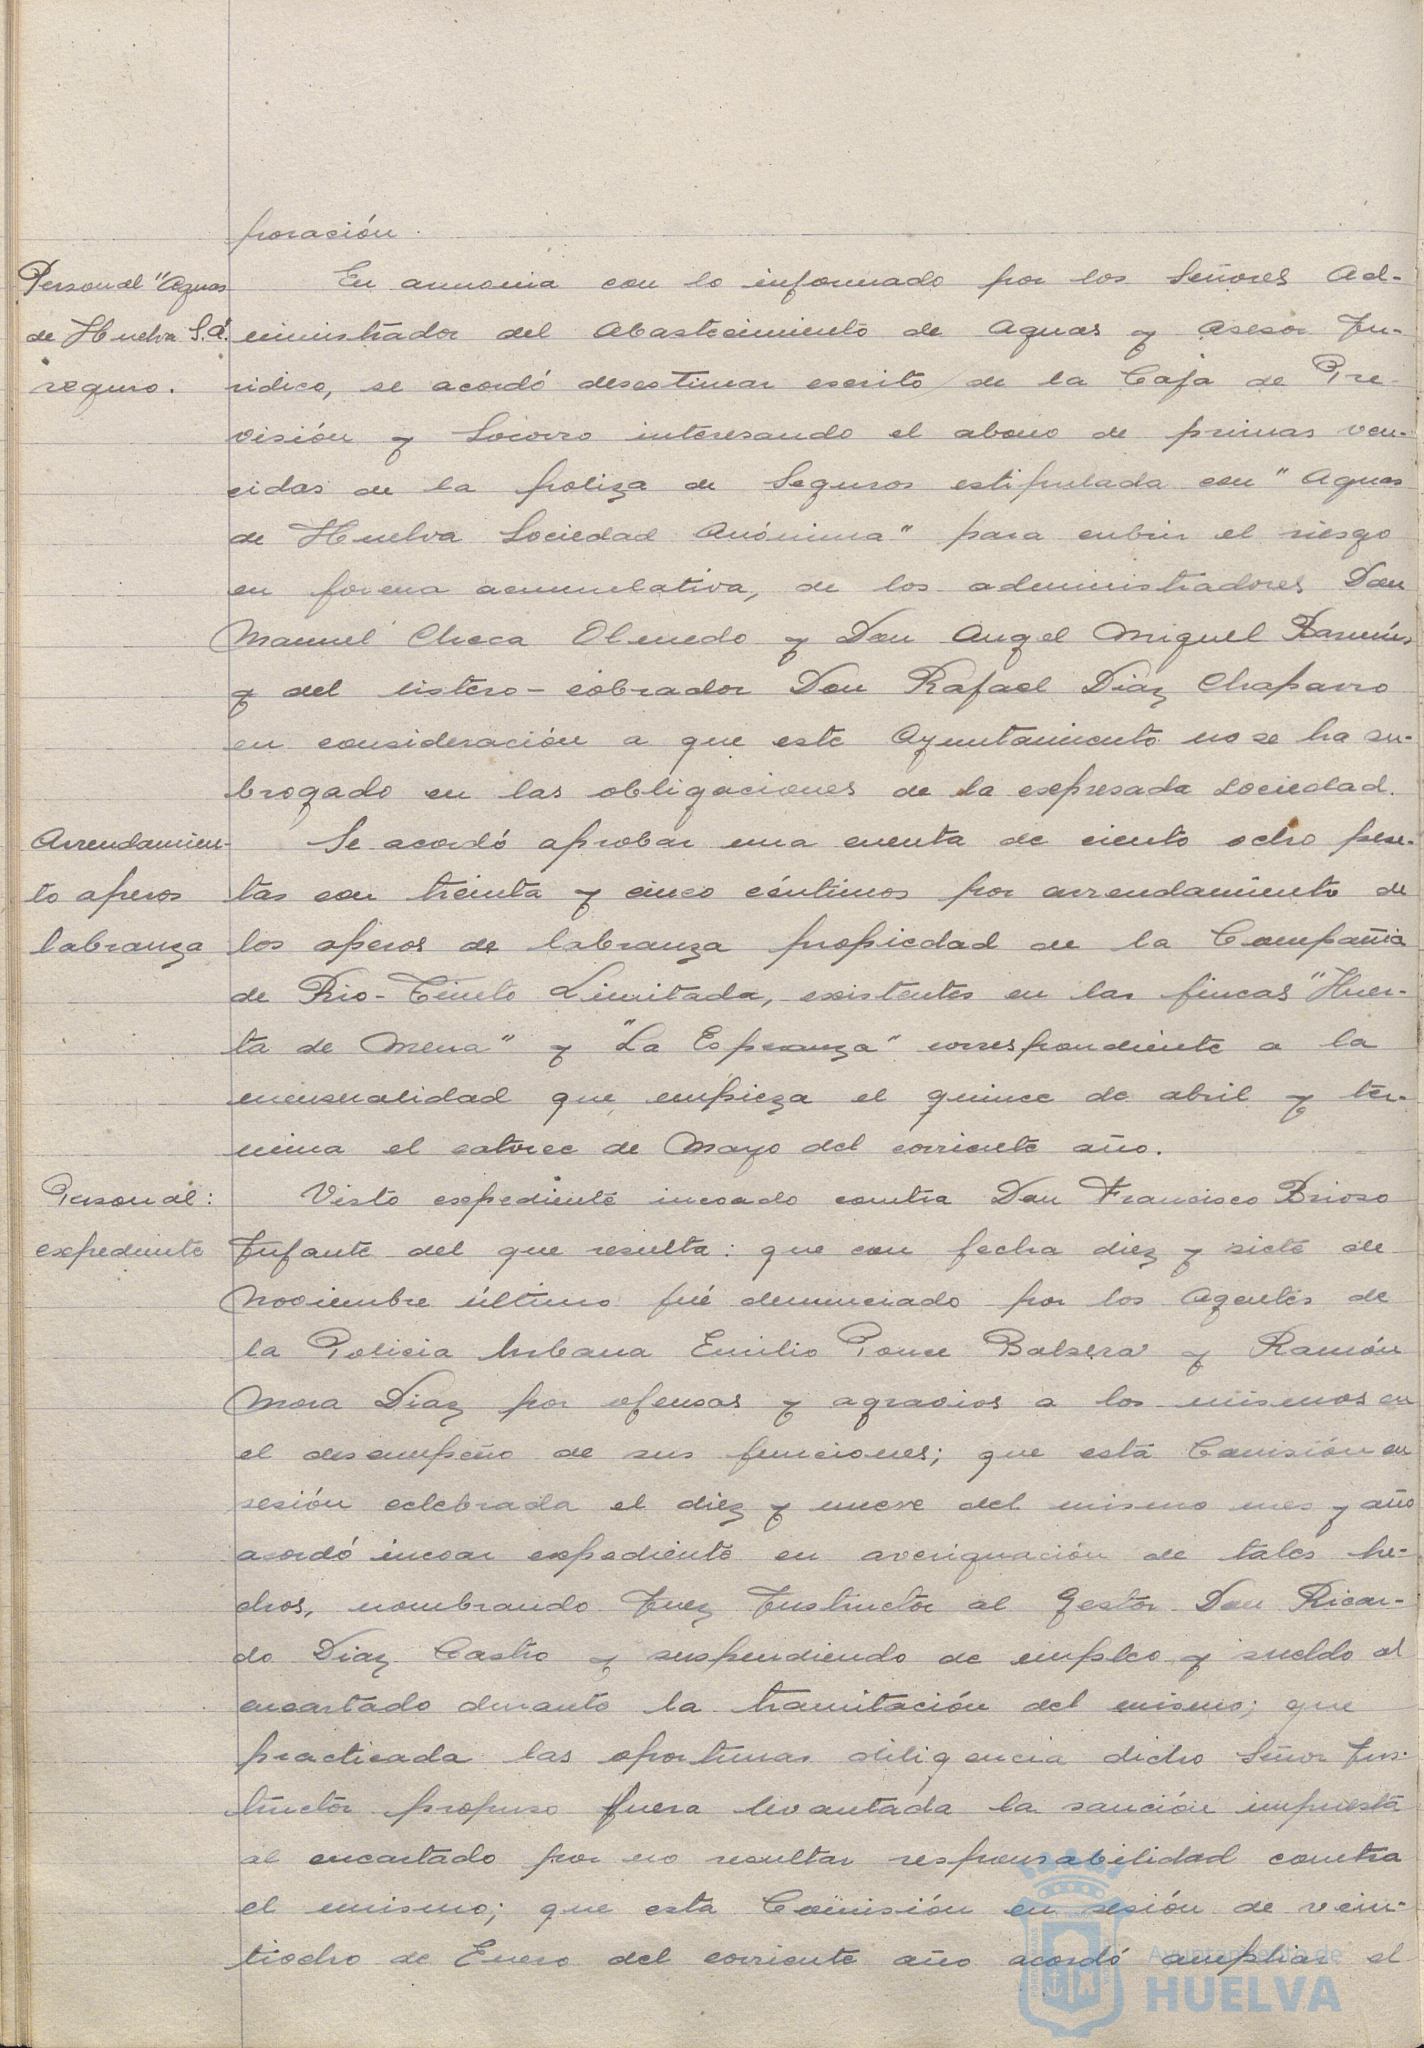 poración.
Personal "Aguas
de Huelva S.A."
seguro.
En armonia con lo informado por los Señores Ad-
ministrador del Abastecimiento de Aguas y Asesor Ju-
ridico, se acordó desestimar escrito de la Caja de Pre-
visión y Socorro interesando el abono de primas ven-
cidas de la poliza de Seguros estipulada con "Aguas
de Huelva Sociedad Anónima" para cubrir el riesgo
en forma acumulativa, de los administradores Don
Manuel Checa Olmedo y Don Angel Miguel Ramirez
y del listero-cobrador Don Rafael Diaz Chaparro
en consideración a que este Ayuntamiento no se ha su-
brogado en las obligaciones de la expresada Sociedad.
Arrendamien-
to aperos
labranza
Se acordó aprobar una cuenta de ciento ocho pese-
tas con treinta y cinco céntimos por arrendamiento de
los aperos de labranza propiedad de la Compañia
de Rio-Tinto Limitada, existentes en las fincas "Huer-
ta de Mena" y "La Esperanza" correspondiente a la
mensualidad que empieza el quince de abril y ter-
mina el catorce de Mayo del corriente año.
Personal:
expediente
Visto expediente incoado contra Don Francisco Brioso
Infante del que resulta: que con fecha diez y siete de
Noviembre último fué denunciado por los Agentes de
la Policia Urbana Emilio Ponce Balsera y Ramón
Mora Diaz por ofensas y agravios a los mismos en
el desempeño de sus funciones; que esta Comisión en
sesión celebrada el diez y nueve del mismo mes y año
acordó incoar expediente en averiguación de tales he-
chos, nombrando Juez Instructor al Gestor Don Ricar-
do Diaz Castro y suspendiendo de empleo y sueldo al
encartado durante la tramitación del mismo; que
practicada las oportunas diligencia dicho Señor Ins-
tructor propuso fuera levantada la sanción impuesta
al encartado por no resultar responsabilidad contra
el mismo; que esta Comisión en sesión de vein-
tiocho de Enero del corriente año acordó ampliar el
Ayuntamiento de
HUELVA